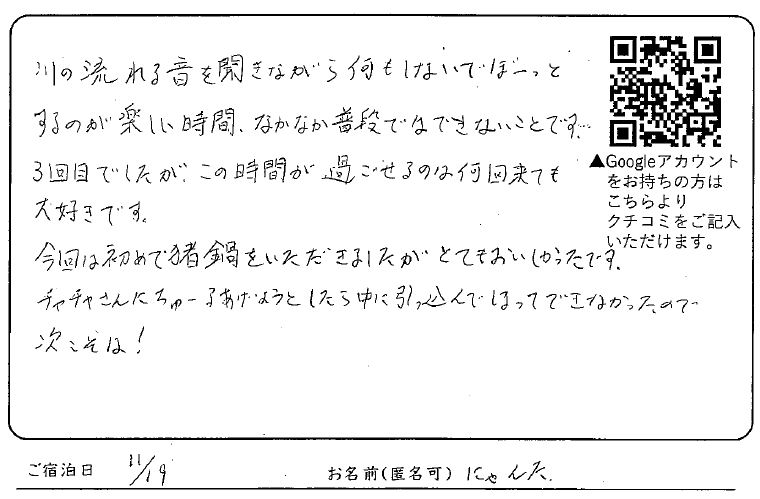 川の流れる音を聞きながら何もしないでぼーっと
するのが楽しい時間、なかなか普段ではできないことです…
3回目でしたが、この時間が過ごせるのは何回来ても
大好きです。
今回は初めて猪鍋をいただきましたがとてもおいしかったです。
チャチャさんにちゅーるあげようとしたら中に引っ込んでしまってできなかったので
次こそは！
▲Googleアカウント
をお持ちの方は
こちらより
クチコミをご記入
いただけます。
ご宿泊日 11/19 お名前(匿名可) にゃんた.